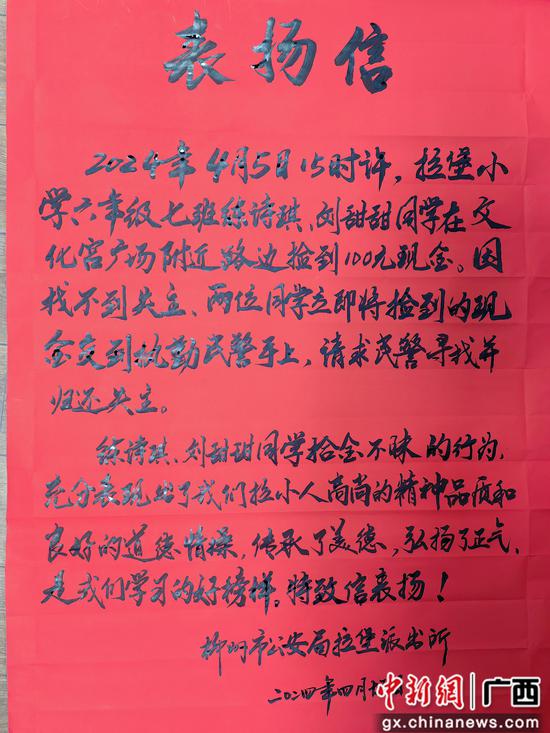 表扬信
2024年4月5日15时许，拉堡小
学六年级七班练诗琪、刘甜甜同学在文
化宫广场附近路边捡到100元现金。因
找不到失主、两位同学立即将捡到的现
金交到执勤民警手上，请求民警寻找并
归还失主。
练诗琪、刘甜甜同学拾金不昧的行为，
充分表现出了我们拉小人高尚的精神品质和
良好的道德情操，传承了美德，弘扬了正气，
是我们学习的好榜样。特致信表扬！
柳州市公安局拉堡派出所
二〇二四年四月
中新网 广西
gx.chinanews.com.cn